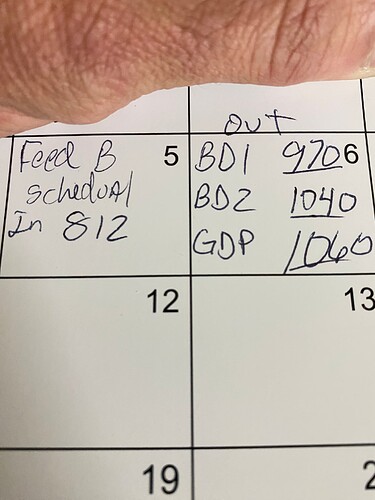 Feed B 5
Schedual
In 812
out
BD1 970 6
BD2 1040
GDP 1060
12
13
19
2